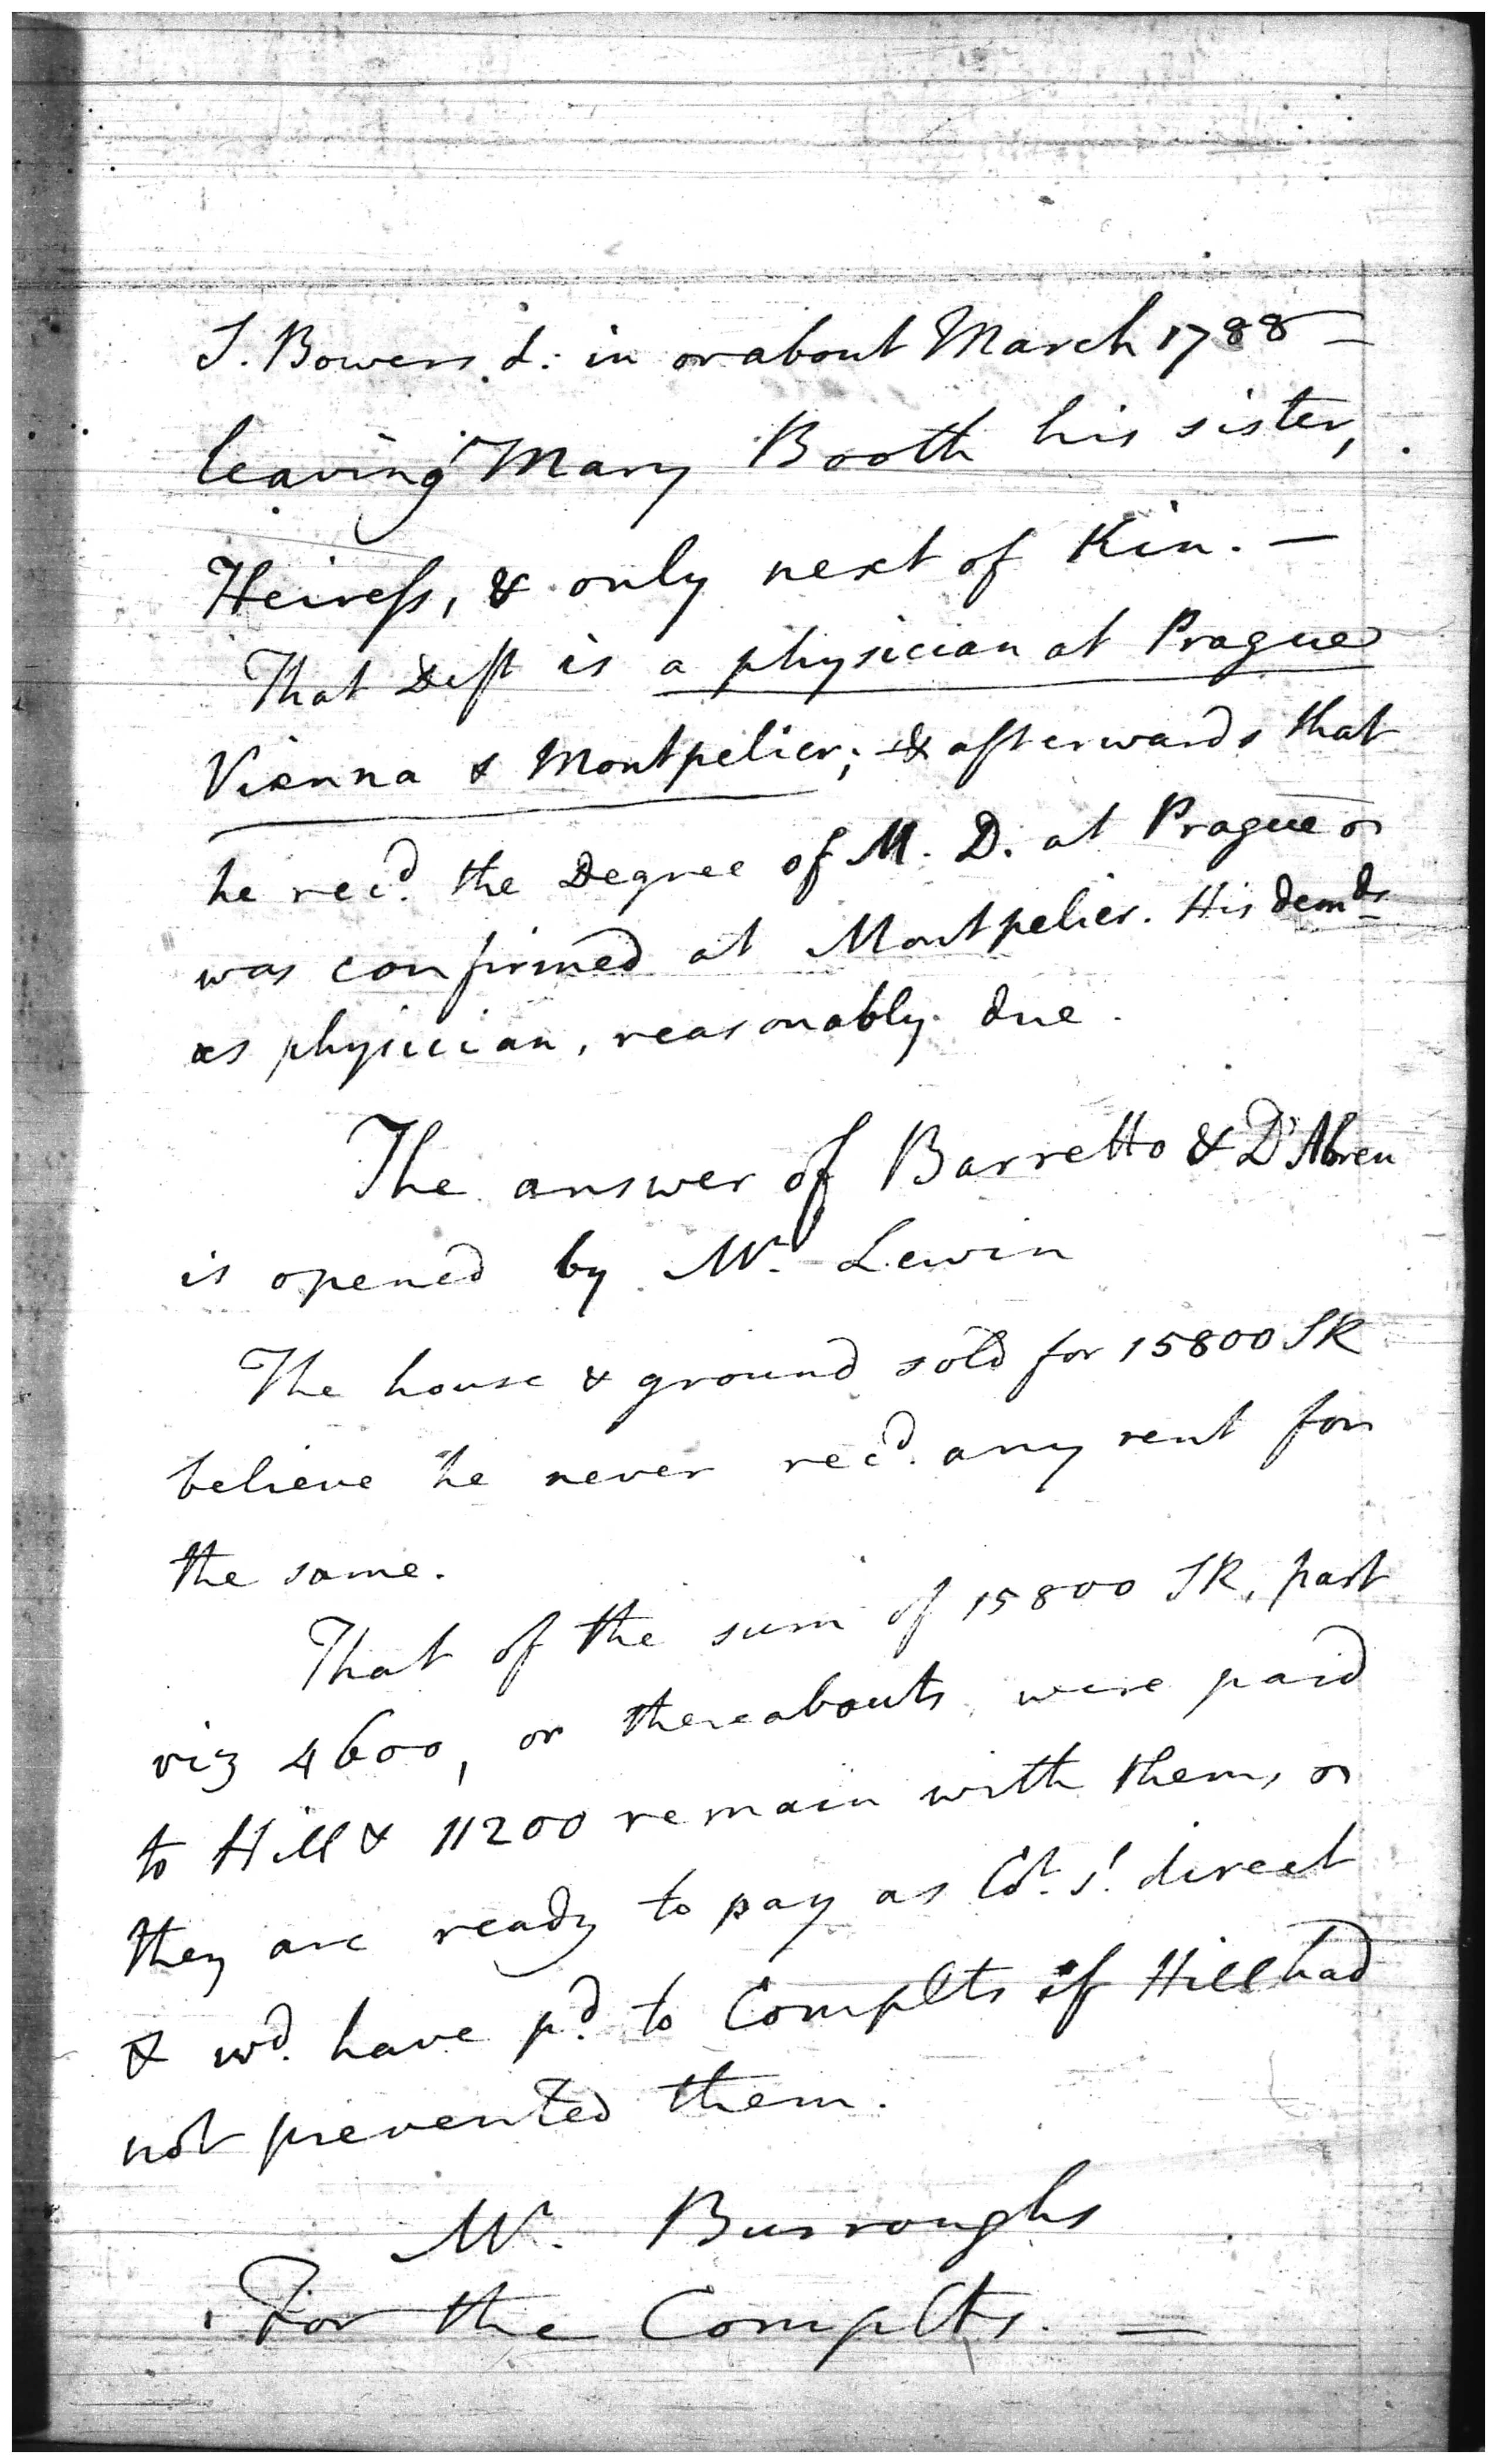 J. Bowers d: in or about March 1788 —
leaving Mary Booth his sister,
Heiress, & only next of Kin. —
That Deft is a physician at Prague
Vienna & Montpelier; & afterwards that
he recd. the Degree of M. D. at Prague &
was confirmed at Montpelier. His demds
as physician, reasonably due.
The answer of Barretto & D'Abreu
is opened by Mr. Lewin
The house & ground sold for 15800 SR
believe he never recd. any rent for
the same.
That of the sum of 15800 SR, part
viz 4600, or thereabouts were paid
to Hill & 11200 remain with them, &
they are ready to pay as Ct. sl. direct
& wd. have pd. to Complts if Hill had
not prevented them.
Mr. Burroughs
For the Complts. —